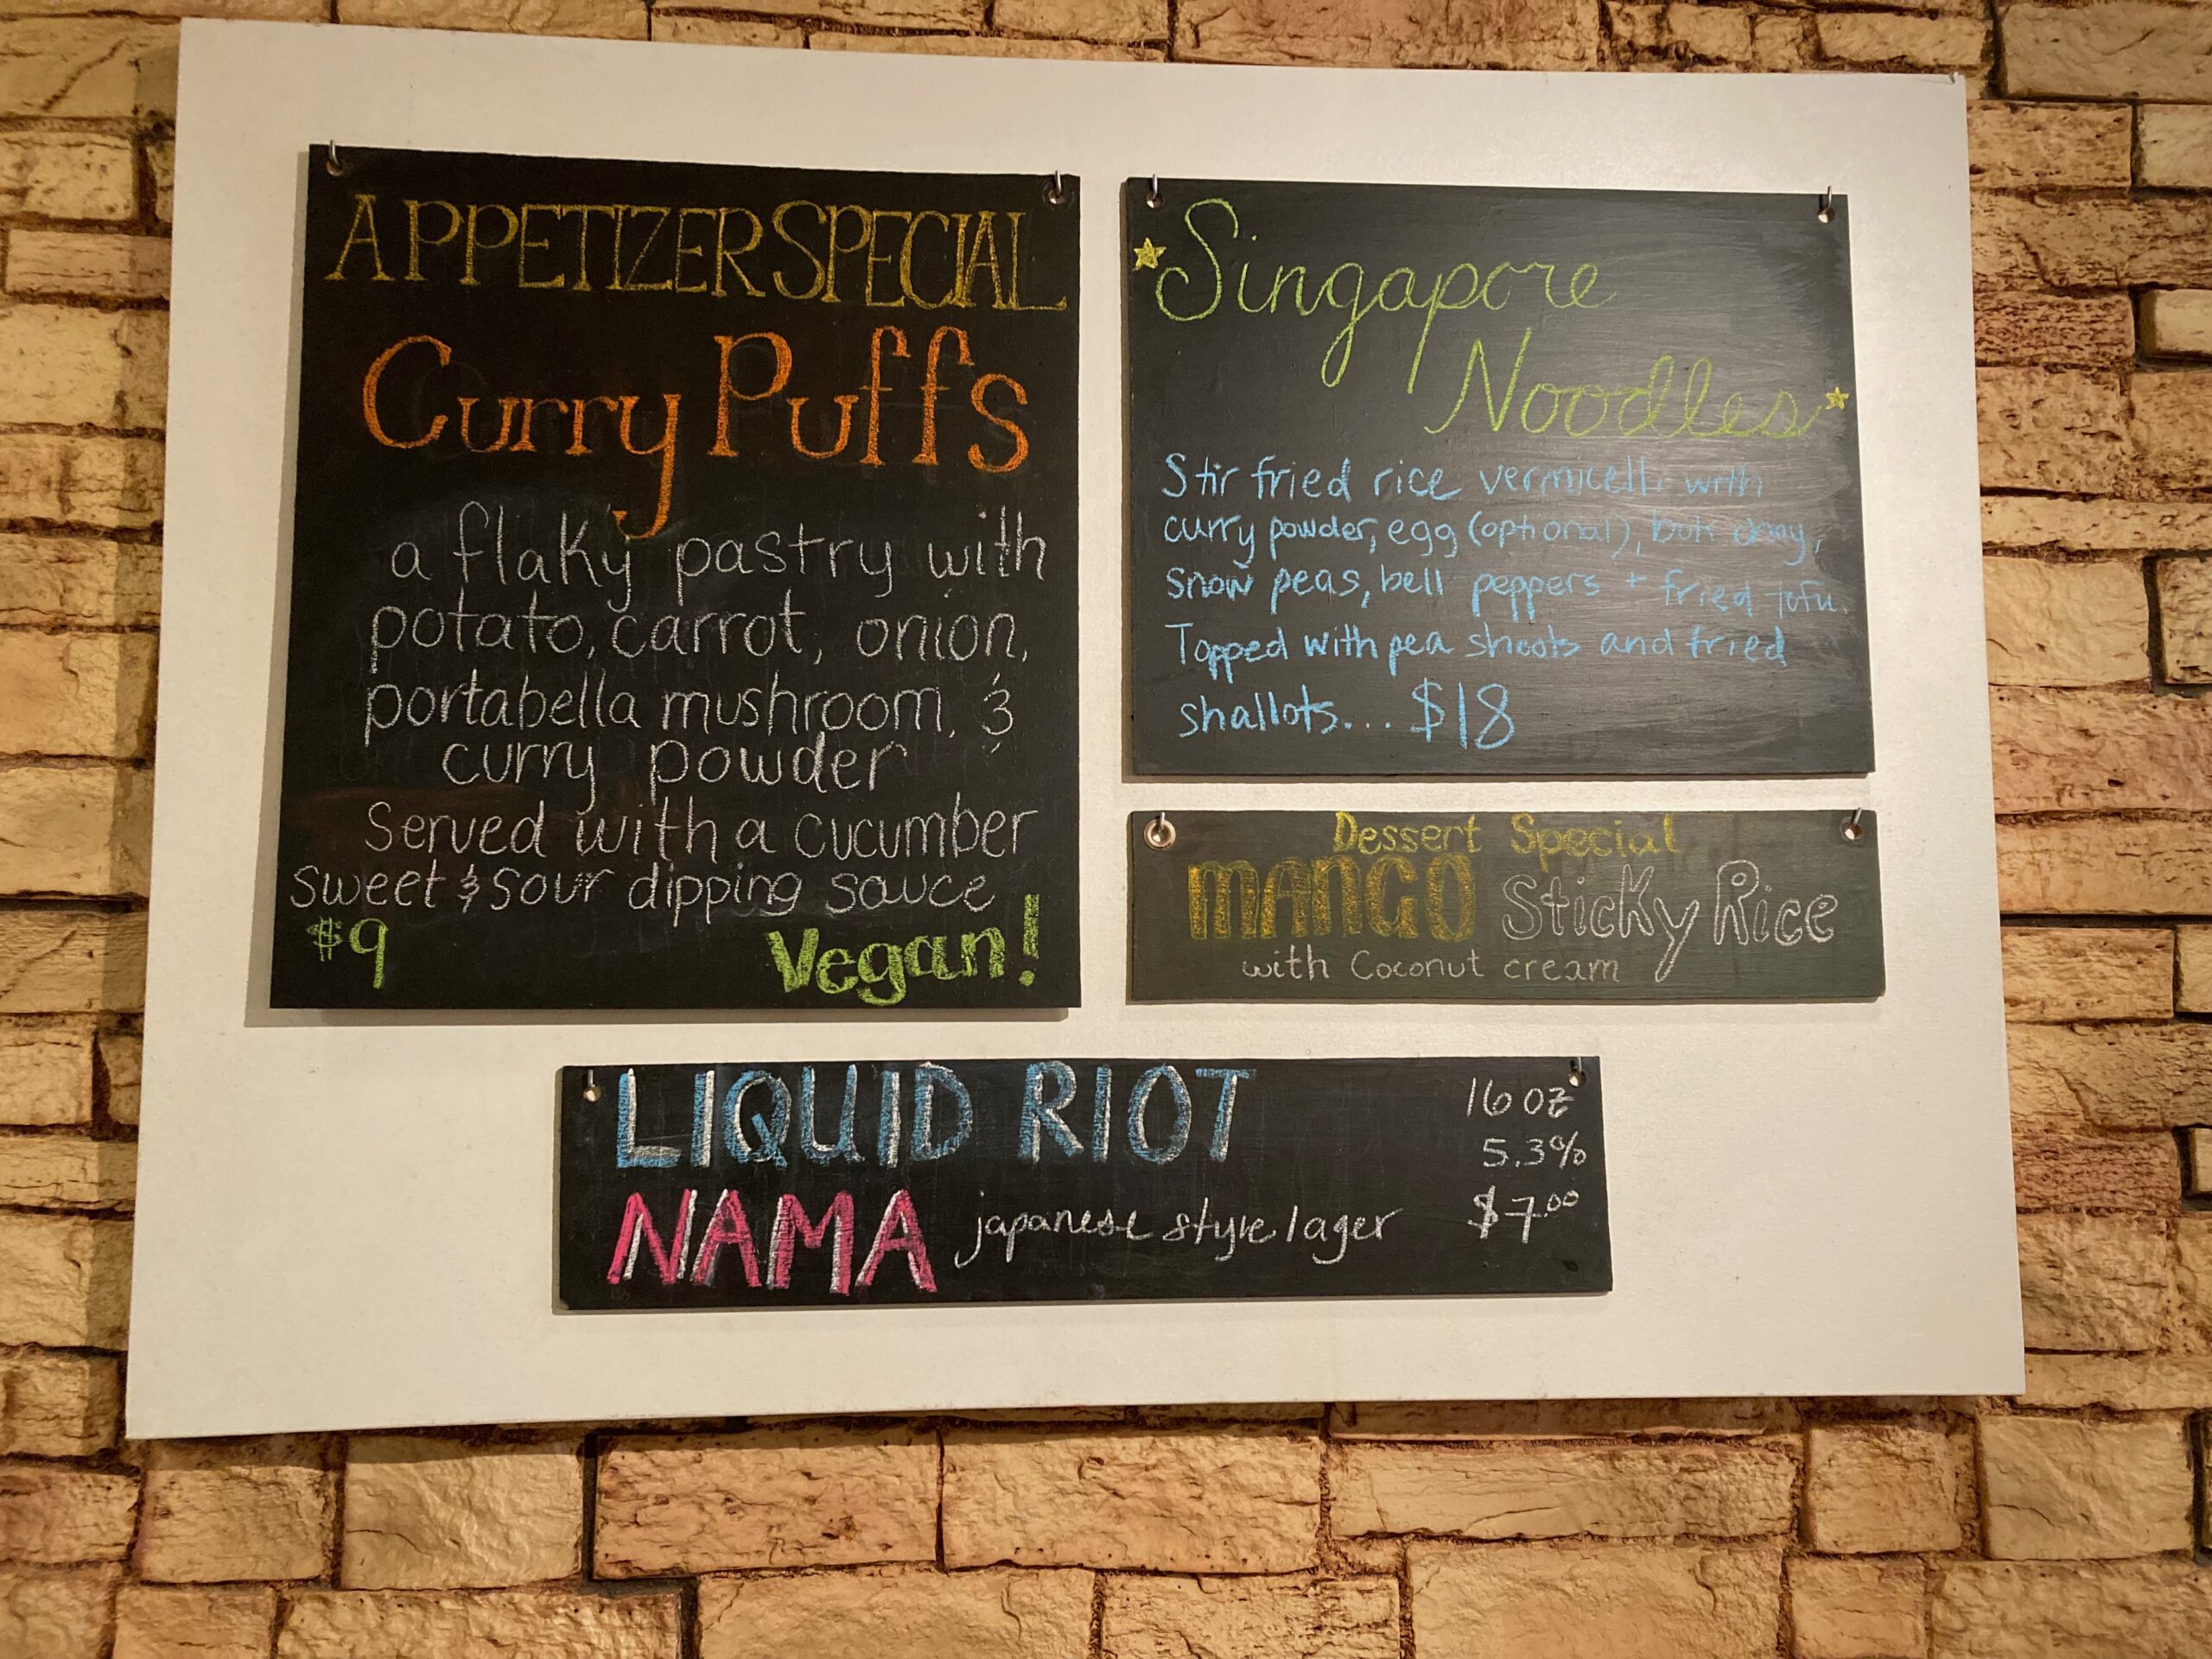 APPETIZER SPECIAL
Curry Puffs
a flaky pastry with
potato, carrot, onion,
portabella mushroom, &
curry powder
Served with a cucumber
sweet & sour dipping sauce
$9
Vegan!
Singapore
Noodles
Stir fried rice vermicelli with
curry powder, egg (optional), bok choy,
snow peas, bell peppers + fried tofu.
Topped with pea shoots and fried
shallots... $18
Dessert Special
MANGO Sticky Rice
with Coconut cream
LIQUID RIOT
16 oz
5.3%
NAMA japanese style lager
$7.00